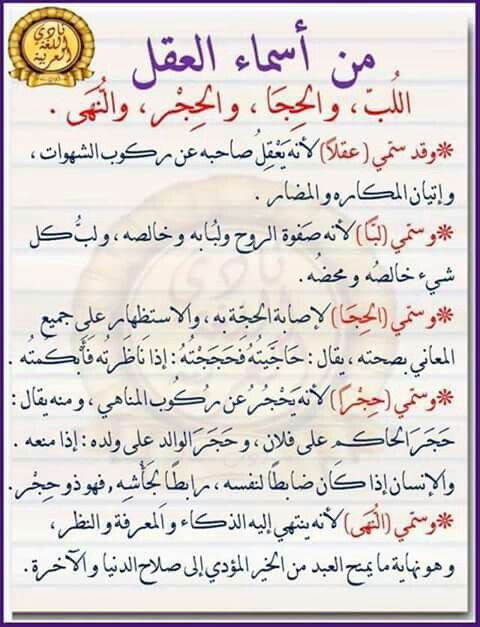 نادي
اللغة
العربية
من أسماء العقل
اللُبّ، والحِجَا، والحِجْر، والنُهَى.
*وقد سمّي (عقلاً) لأنه يَعْقِلُ صاحبه عن ركوب الشهوات،
وإتيان المكاره والمضار.
*وسمّي (لبًّا) لأنه صَفوة الروح ولبُابه وخالصه، ولبُّ كل
شيء خالصُه ومحضُه.
*وسمّي (الحِجَا) لإصابة الحجّة به، والاستظهار على جميع
المعاني بصحته، يقال: حَاجَيتُه فَحَجَجْتُه: إذا نَاظَرتُه فَأَبكَمتُه.
*وسمّي (حِجْراً) لأنه يَحْجُرُ عن ركُوب المناهي، ومنه يقال:
حَجَرَ الحاكم على فلان، وحَجَرَ الوالد على ولده: إذا منعه.
والإنسان إذا كَان ضابطًا لنفسه، رابطًا لجَأشِه, فهو ذو حِجْر.
*وسمّي (النُهَى) لأنه ينتهي إليه الذكاء والمَعرفة والنظر،
وهو نهاية ما يمنح العبد من الخير المؤدي إلى صلاح الدنيا والآخرة.